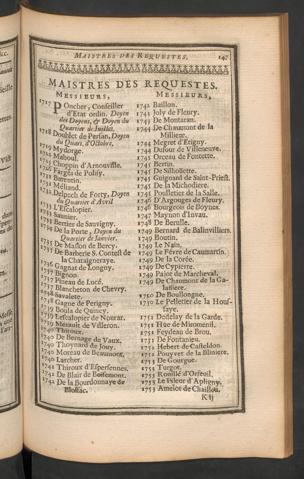 MAISTRES DES REQUESTES. 147
MAISTRES DES REQUESTES.
MESSIEURS,
1717 PONcher, Conseiller
d'Etat ordin. Doyen
des Doyens, & Doyen du
Quartier de Juillet.
1718 Doublet de Persan, Doyen
du Quart. d'Octobre.
1719 Mydorge.
Maboul.
Choppin d'Arnouville.
Fargés de Polisy.
Barrentin.
Méliand.
Delpech de Fortz, Doyen
du Quartier d'Avril
L'Escalopier.
Saunier.
Bertier de Sauvigny.
De la Porte, Doyen du
Quartier de Janvier.
De Maslon de Bercy.
De Barberie S. Contest de
la Chataigneraye.
1736 Gagnat de Longuy.
1737 Bignon.
1737 Pineau de Lucé.
1737 Blancheton de Chevry.
1738 Savalete.
1738 Gagne de Perigny.
1739 Boula de Quincy.
1739 Lescalopier de Nourar.
1739 Merault de Villeron.
1740 Thiroux.
1740 De Bernage de Vaux.
1740 Thoynard de Jouy.
1740 Moreau de Beaumont.
1740 Larcher.
1741 Thiroux d'Espersennes.
1741 De Blair de Boisemont.
1742 De la Bourdonnaye de
Blossac.
MESSIEURS,
1742 Baillon.
1743 Joly de Fleury.
1743 De Montaran.
1744 De Chaumont de la
Millière.
1744 Megret d'Etigny.
1744 Dufour de Villeneuve.
1745 Orceau de Fontette.
1745 Bertin.
1745 De Silhoüette.
1745 Guignard de Saint-Priest.
1745 De la Michodiere.
1745 Poulletier de la Salle.
1746 D'Argouges de Fleury.
1746 Bourgeois de Boynes.
1747 Maynon d'Invau.
1748 De Berulle.
1749 Bernard de Balinvilliers
1749 Boutin.
1749 Le Nain.
1749 Le Févre de Caumartin.
1749 De la Corée.
1749 De Cypierre.
1749 Pajot de Marcheval.
1749 De Chaumont de la Ga-
laisiere.
1750 De Boullongne.
1750 Le Pelletier de la Hous-
saye.
1751 Dedelay de la Garde.
1751 Hüe de Miromenil.
1751 Feydeau de Brou.
1751 De Fontanieu.
1751 Hebert de Casteldon.
1752 Pouyvet de la Bliniere.
1752 De Gourgue.
1753 Turgot.
1753 Rouillé d'Orfeuil.
1753 Le Fsleur d'Apligny.
1753 Amelot de Chaillou.
K ij